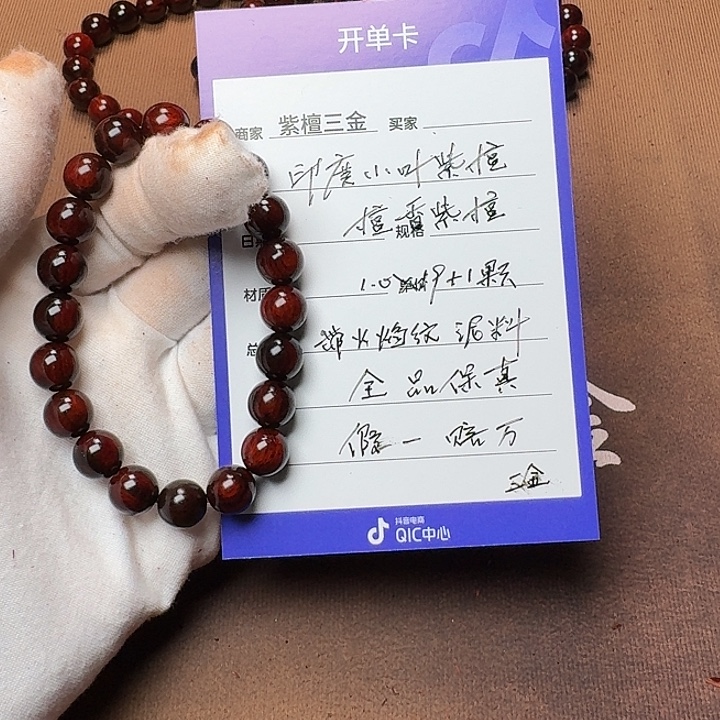 开单卡
商家 紫檀三金 买家
印度小叶紫檀
檀香紫檀
日 规格
材质
1.0 9+1颗
总
火焰纹 泥料
全品保真
假一赔万
三金
抖音电商
QIC中心